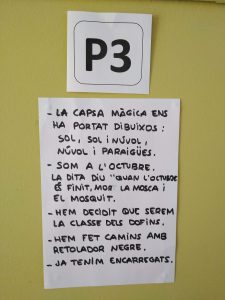 P3
- LA CAPSA MÀGICA ENS
HA PORTAT DIBUIXOS:
SOL, SOL I NÚVOL,
NÚVOL I PARAIGÜES.
- SOM A L'OCTUBRE.
LA DITA DIU "QUAN L'OCTUBRE
ÉS FINIT, MOR LA MOSCA I
EL MOSQUIT.
- HEM DECIDIT QUE SEREM
LA CLASSE DELS DOFINS.
- HEM FET CAMINS AMB
RETOLADOR NEGRE.
- JA TENIM ENCARREGATS.